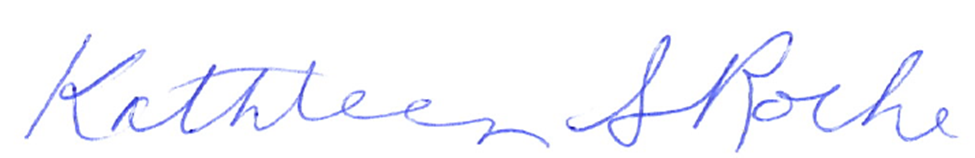 Kathleen S Roche